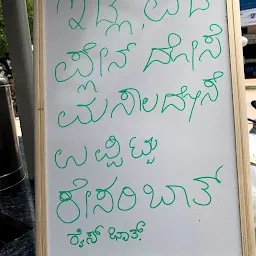 ಇಡ್ಲಿ, ವಡೆ
ಪ್ಲೇನ್ ದೋಸೆ
ಮಸಾಲದೋಸೆ
ಉಪ್ಪಿಟ್ಟು
ಕೇಸರಿ ಬಾತ್
ರೈಸ್ ಬಾತ್